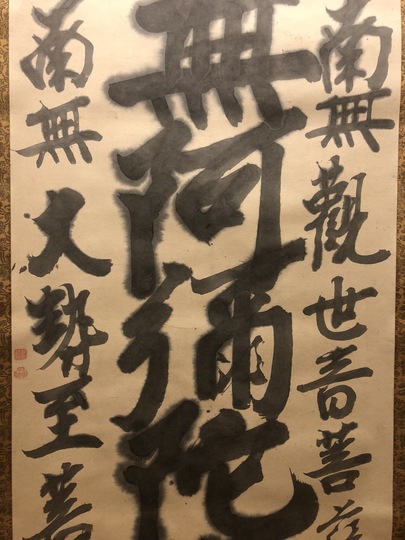 南無觀世音菩薩
無阿彌陀
南無大勢至菩